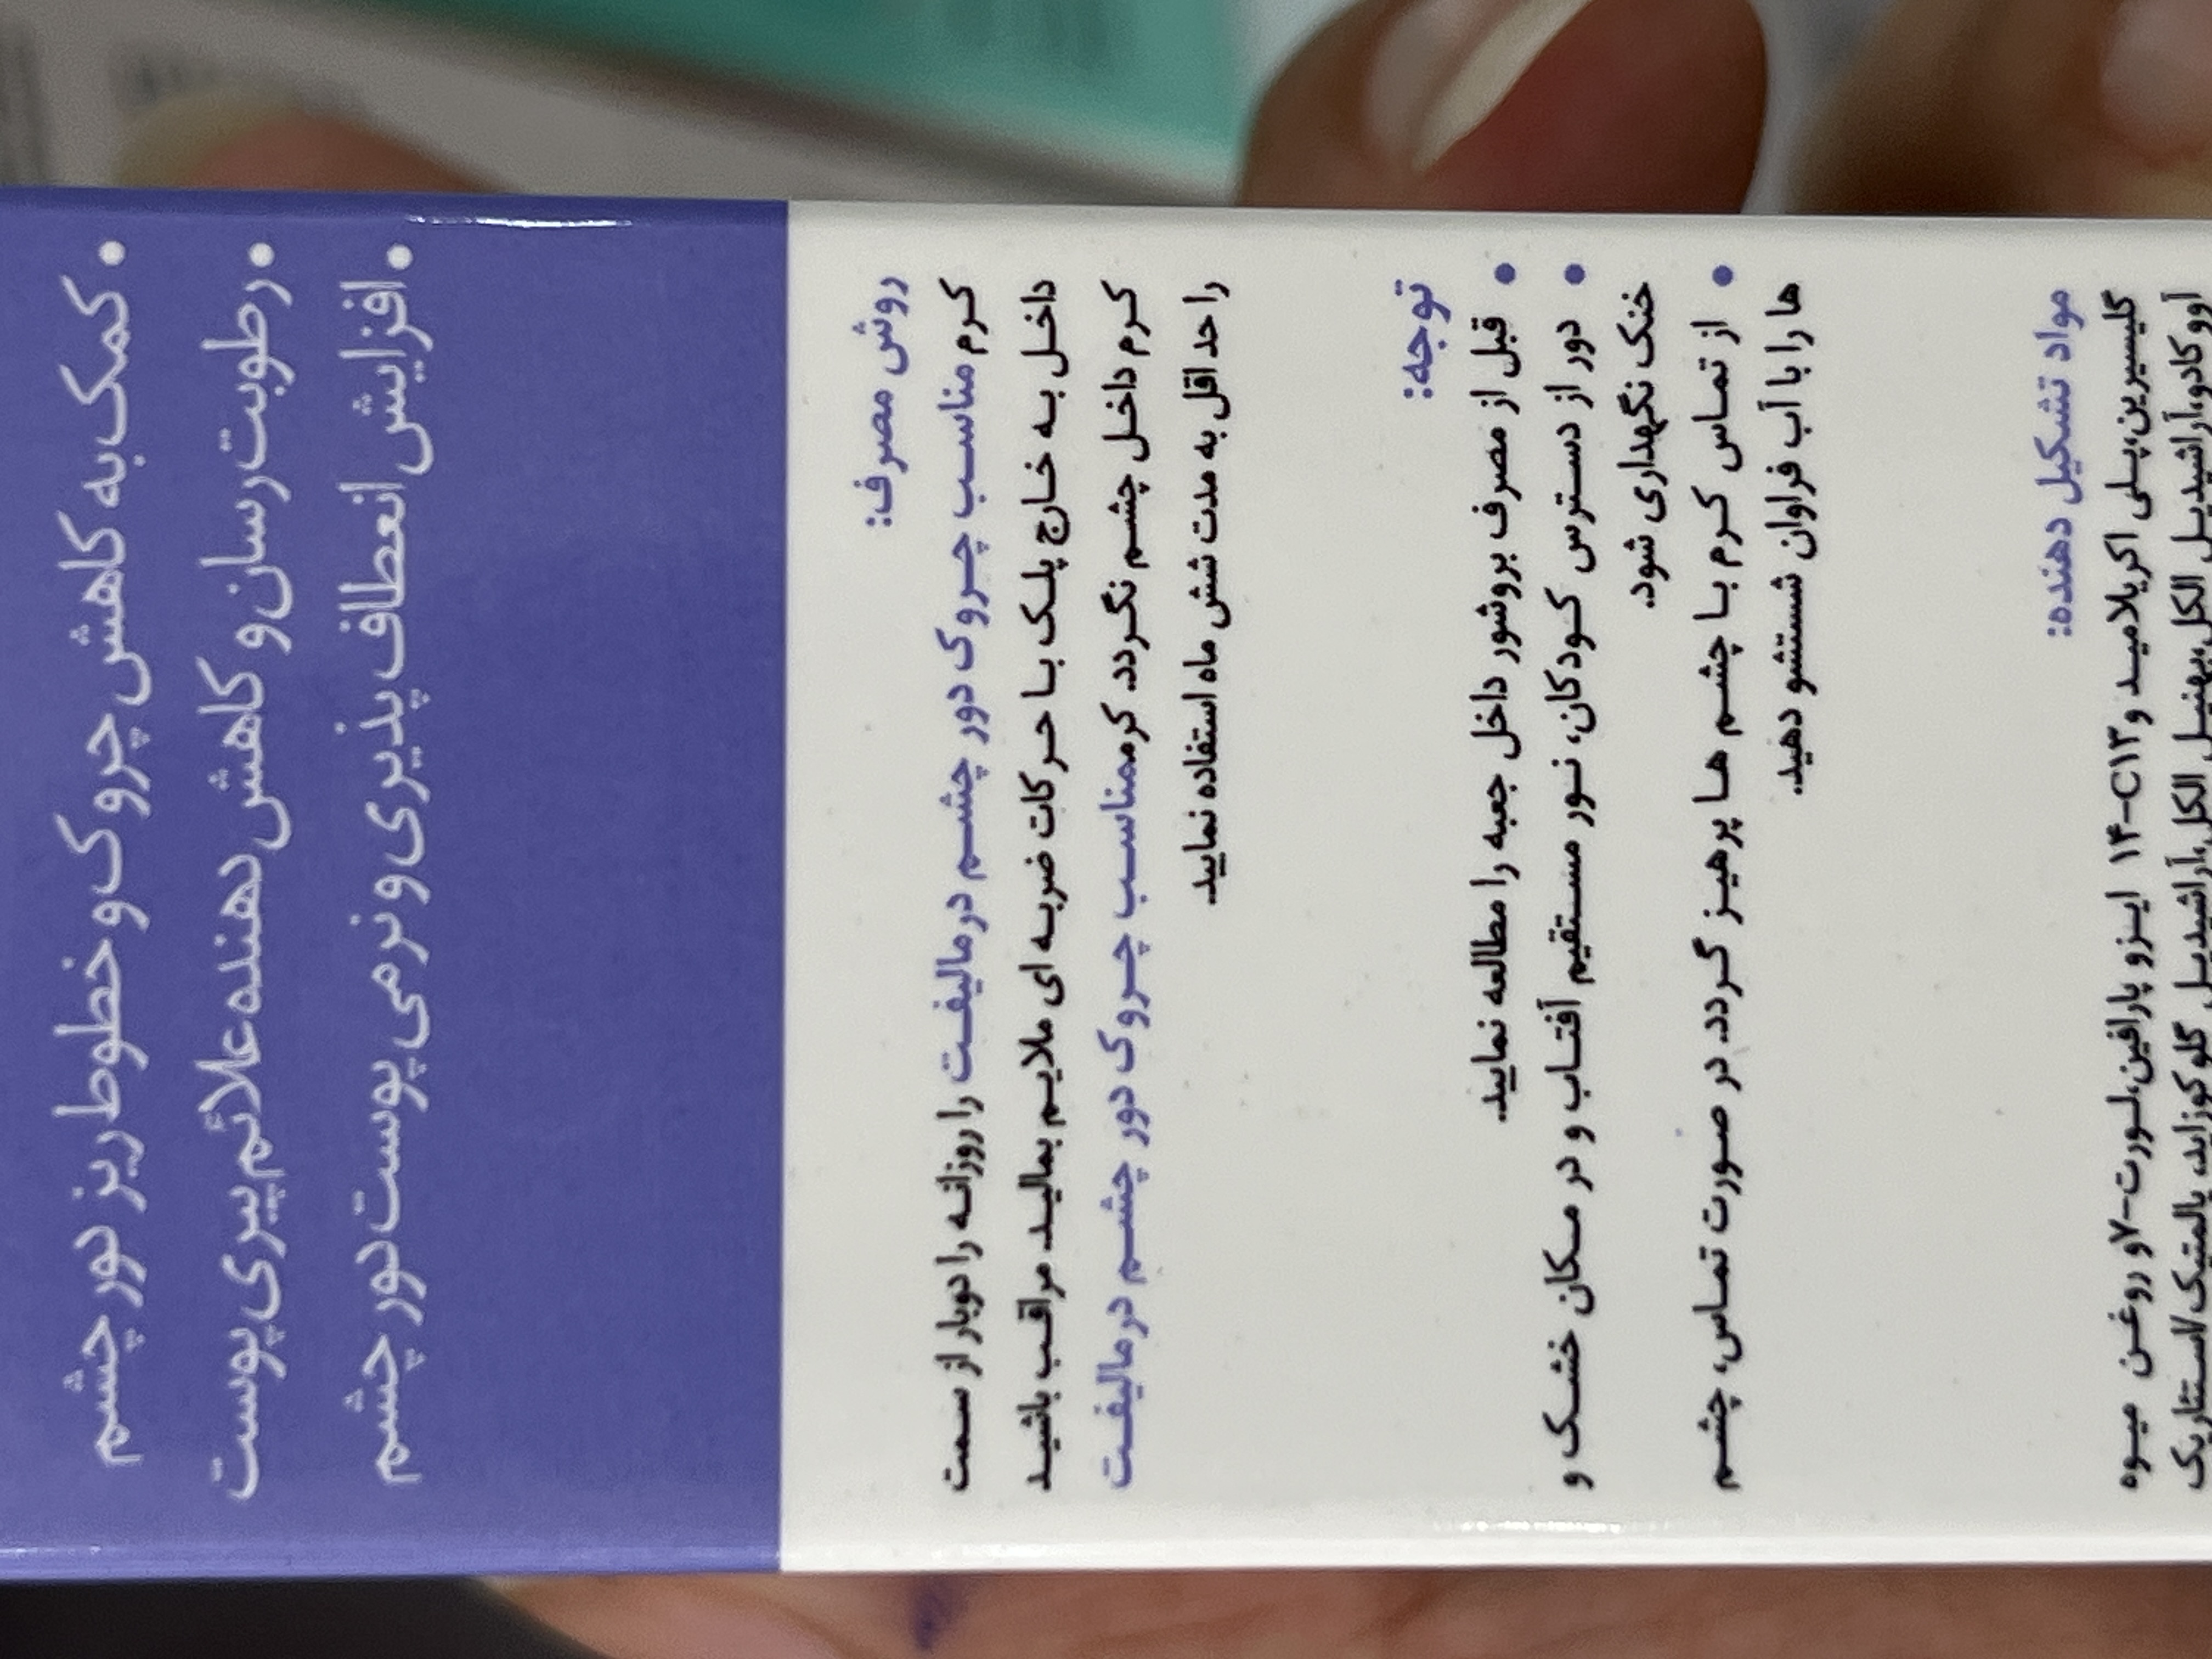 • کمک به کاهش چروک و خطوط ریز دور چشم
• رطوبت رسان و کاهش دهنده علائم پیری پوست
• افزایش انعطاف پذیری و نرمی پوست دور چشم
روش مصرف:
کرم مناسب چروک دور چشم درمالیفت را روزانه را دوبار از سمت
داخل به خارج پلک با حرکات ضربه ای ملایم بمالید مراقب باشید
کرم داخل چشم نگردد. کرم مناسب چروک دور چشم درمالیفت
را حداقل به مدت شش ماه استفاده نمایید.
توجه:
• قبل از مصرف بروشور داخل جعبه را مطالعه نمایید.
• دور از دسترس کودکان، نور مستقیم آفتاب و در مکان خشک و
خنک نگهداری شود.
• از تماس کرم با چشم ها پرهیز گردد. در صورت تماس، چشم
ها را با آب فراوان شستشو دهید.
مواد تشکیل دهنده:
گلیسیرین،پلی اکریلامید و C۱۳-۱۴ ایزو پارافین،لورت-۷و روغن میوه
آووکادو،آراشیدیل الکل،بهنیل الکل،آراشیدیل گلوکوزاید، پالمتیک/استئاریک